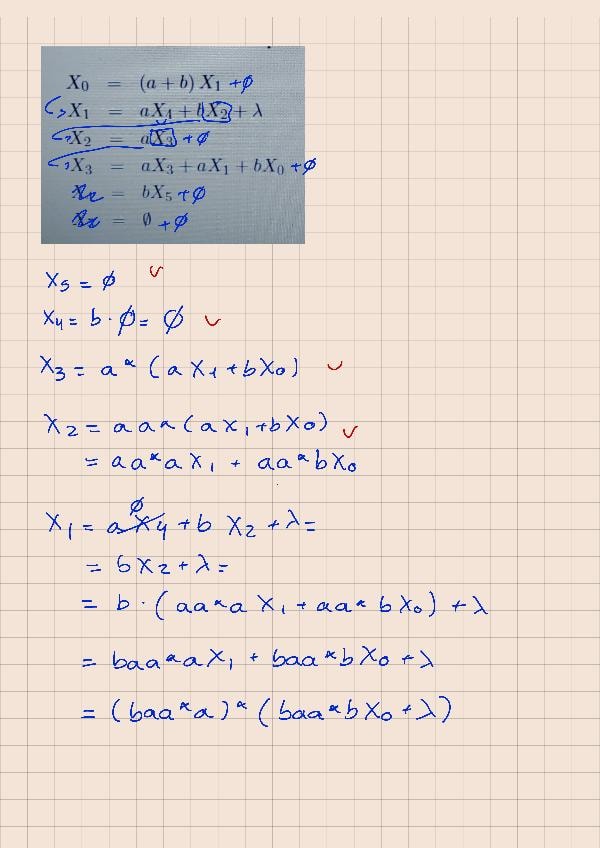 X₀ = (a + b) X₁ + ∅
X₁ = aX₄ + bX₂ + λ
X₂ = aX₃ + ∅
X₃ = aX₃ + aX₁ + bX₀ + ∅
= bX₅ + ∅
= ∅ + ∅
X₅ = ∅ ✓
X₄ = b · ∅ = ∅ ✓
X₃ = a* (a X₁ + b X₀) ✓
X₂ = a a* (a X₁ + b X₀) ✓
= a a* a X₁ + a a* b X₀
∅
X₁ = a X₄ + b X₂ + λ =
= b X₂ + λ =
= b · (a a* a X₁ + a a* b X₀) + λ
= b a a* a X₁ + b a a* b X₀ + λ
= (b a a* a)* (b a a* b X₀ + λ)